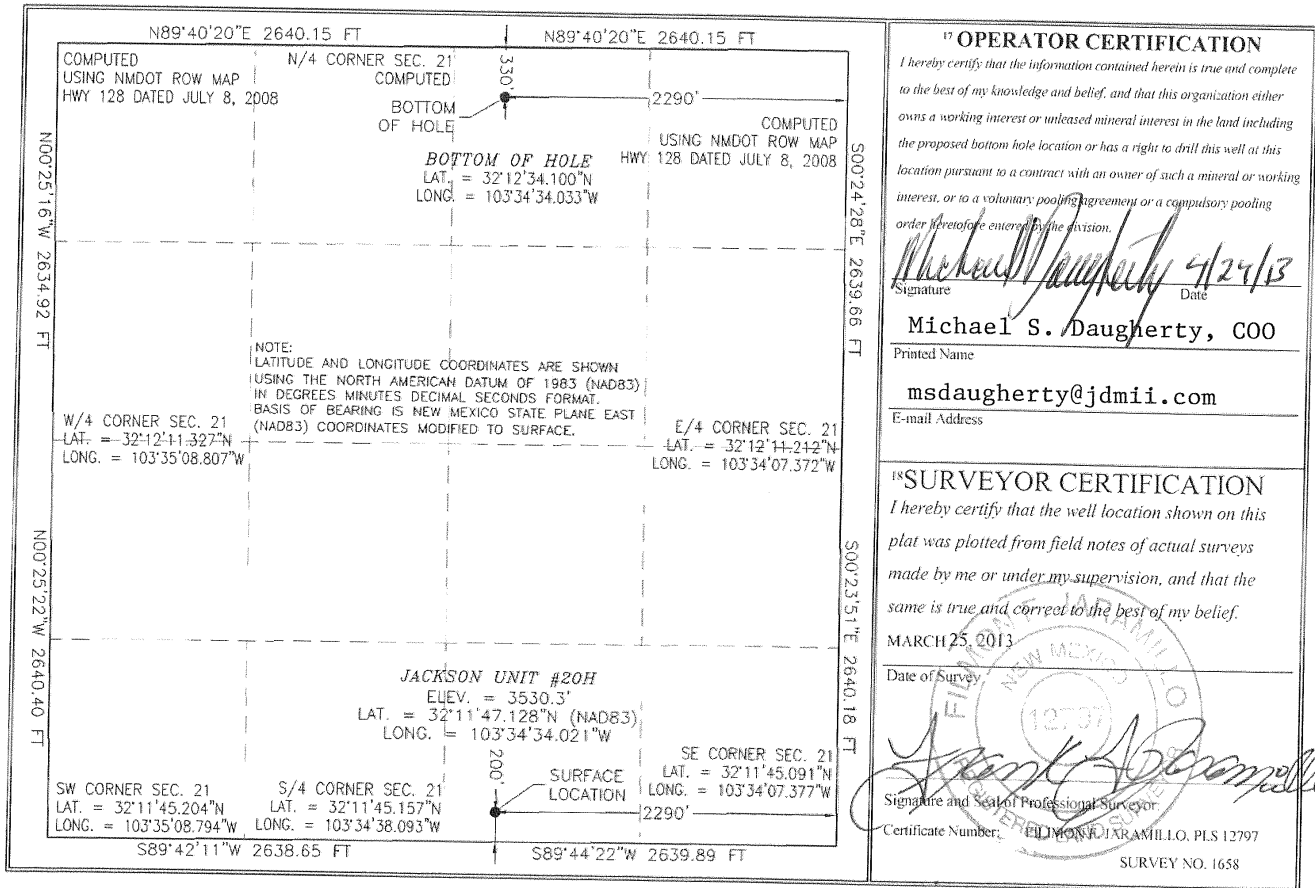 N89°40'20"E 2640.15 FT
N89°40'20"E 2640.15 FT
COMPUTED
USING NMDOT ROW MAP
HWY 128 DATED JULY 8, 2008
N/4 CORNER SEC. 21
COMPUTED
330'
BOTTOM
OF HOLE
2290'
COMPUTED
USING NMDOT ROW MAP
HWY 128 DATED JULY 8, 2008
BOTTOM OF HOLE
LAT. = 32°12'34.100"N
LONG. = 103°34'34.033"W
N00°25'16"W 2634.92 FT
S00°24'28"E 2639.66 FT
NOTE:
LATITUDE AND LONGITUDE COORDINATES ARE SHOWN
USING THE NORTH AMERICAN DATUM OF 1983 (NAD83)
IN DEGREES MINUTES DECIMAL SECONDS FORMAT.
BASIS OF BEARING IS NEW MEXICO STATE PLANE EAST
(NAD83) COORDINATES MODIFIED TO SURFACE.
W/4 CORNER SEC. 21
LAT. = 32°12'11.327"N
LONG. = 103°35'08.807"W
E/4 CORNER SEC. 21
LAT. = 32°12'11.212"N
LONG. = 103°34'07.372"W
N00°25'22"W 2640.40 FT
S00°23'51"E 2640.18 FT
JACKSON UNIT #20H
ELEV. = 3530.3'
LAT. = 32°11'47.128"N (NAD83)
LONG. = 103°34'34.021"W
200'
SURFACE
LOCATION
2290'
SW CORNER SEC. 21
LAT. = 32°11'45.204"N
LONG. = 103°35'08.794"W
S/4 CORNER SEC. 21
LAT. = 32°11'45.157"N
LONG. = 103°34'38.093"W
SE CORNER SEC. 21
LAT. = 32°11'45.091"N
LONG. = 103°34'07.377"W
S89°42'11"W 2638.65 FT
S89°44'22"W 2639.89 FT
17 OPERATOR CERTIFICATION
I hereby certify that the information contained herein is true and complete
to the best of my knowledge and belief, and that this organization either
owns a working interest or unleased mineral interest in the land including
the proposed bottom hole location or has a right to drill this well at this
location pursuant to a contract with an owner of such a mineral or working
interest, or to a voluntary pooling agreement or a compulsory pooling
order heretofore entered by the division.
Michael S Daugherty 4/24/13
Signature Date
Michael S. Daugherty, COO
Printed Name
msdaugherty@jdmii.com
E-mail Address
18 SURVEYOR CERTIFICATION
I hereby certify that the well location shown on this
plat was plotted from field notes of actual surveys
made by me or under my supervision, and that the
same is true and correct to the best of my belief.
MARCH 25, 2013
Date of Survey
FILIMON F. JARAMILLO
NEW MEXICO
12797
Signature and Seal of Professional Surveyor:
Certificate Number: FILIMON F. JARAMILLO, PLS 12797
SURVEY NO. 1658